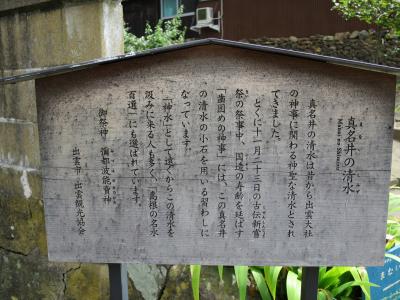 真名井の清水
Manai no Shimizu
真名井の清水は昔から出雲大社
の神事に関わる神聖な清水とされ
てきました。
とくに十一月二十三日の古伝新嘗
祭の祭事中、国造の寿齢を延ばす
「歯固めの神事」には、この真名井
の清水の小石を用いる習わしに
なっています。
「神水」として遠方からこの清水を
汲みに来る人も多く、島根の名水
百選」にも選ばれています。
御祭神 彌都波能賣神
出雲市・出雲観光協会